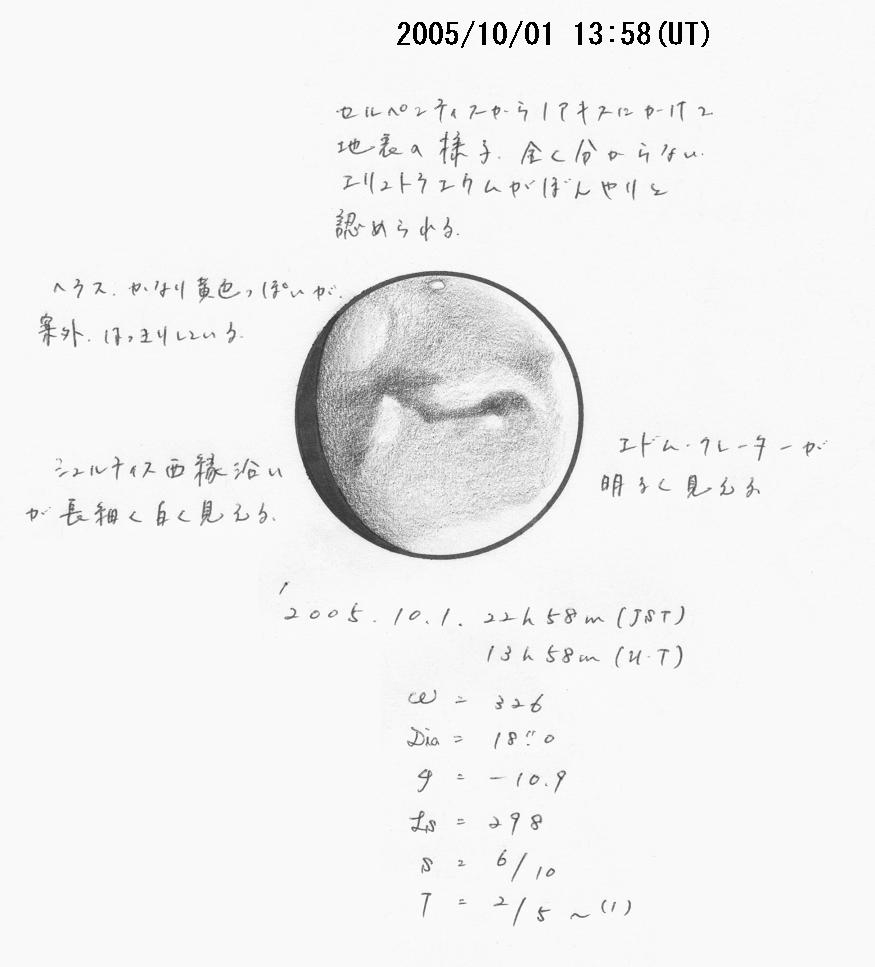 2005/10/01 13:58(UT)
セルペンティスからノアキスにかけて
地表の様子、全く分からない.
エリュトラエウムがぼんやりと
認められる.
ヘラス、かなり黄色っぽいが、
案外、はっきりしている.
シュルティス西縁沿い
が長細く白く見える.
エドム・クレーターが
明るく見える
'2005.10.1. 22h58m (JST)
13h58m (U.T)
ω = 326
Dia = 18".0
φ = -10.9
Ls = 298
S = 6/10
T = 2/5 ~(1)